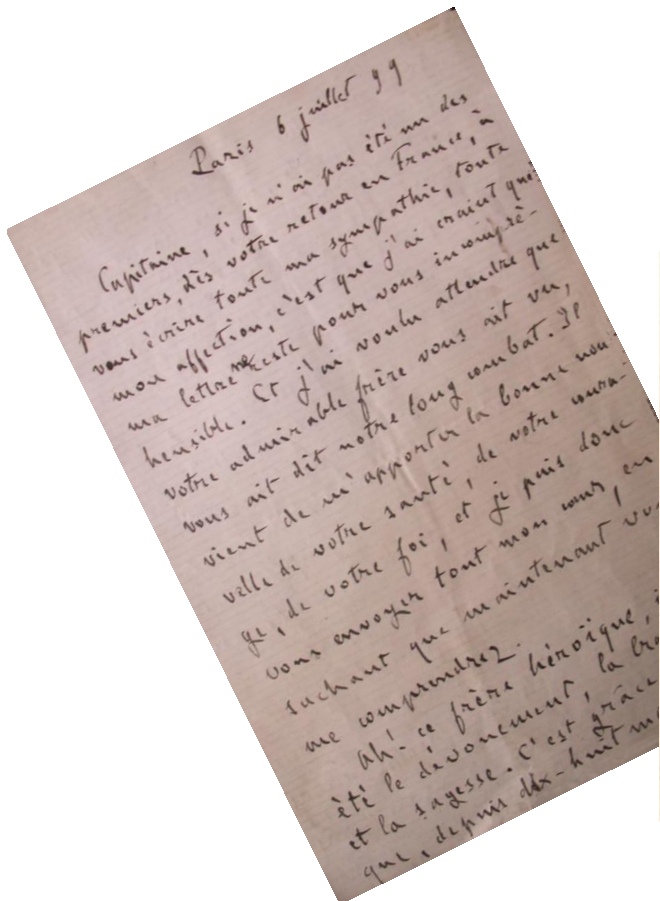 Paris 6 juillet 99
Capitaine, si je n'ai pas été un des
premiers, dès votre retour en France, à
vous écrire toute ma sympathie, toute
mon affection, c'est que j'ai craint que
ma lettre ne reste pour vous incompré-
hensible. Et j'ai voulu attendre que
votre admirable frère vous ait vu,
vous ait dit notre long combat. Il
vient de m'apporter la bonne nou-
velle de votre santé, de votre coura-
ge, de votre foi, et je puis donc
vous envoyer tout mon cœur, en
sachant que maintenant vou
me comprendrez.
Ah! ce frère héroïque, i
été le dévouement, la bra
et la sagesse. C'est grâce
que, depuis dix-huit mo